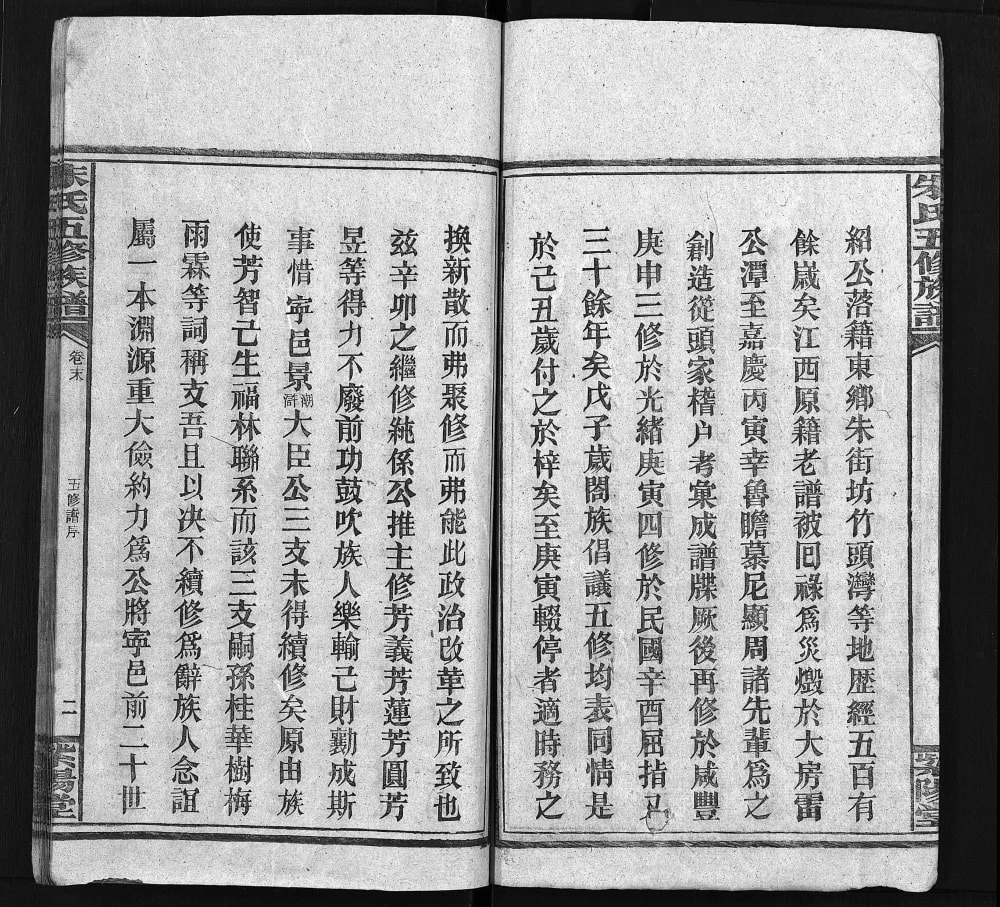 朱氏五修族譜
紫陽堂
紹公落籍東鄉朱街坊竹頭灣等地歷經五百有
餘歲矣江西原籍老譜被回祿爲災燬於大房雷
公潭至嘉慶丙寅幸魯瞻慕尼顯周諸先輩爲之
創造從頭家稽户考彙成譜牒厥後再修於咸豐
庚申三修於光緒庚寅四修於民國辛酉屈指
三十餘年矣戊子歲閤族倡議五修均表同情是
於己丑歲付之於梓矣至庚寅輟停者適時務之
換新散而弗聚修而弗能此政治改革之所致也
玆辛卯之繼修純係公推主修芳義芳蓮芳圓芳
昱等得力不廢前功鼓吹族人樂輸己財勷成斯
事惜寧邑景潮訏大臣公三支未得續修矣原由族
使芳智己生福林聯系而該三支嗣孫桂華樹梅
雨霖等詞稱支吾且以决不續修爲辭族人念誼
屬一本淵源重大儉約力爲公將寧邑前二十世
朱氏五修族譜
卷末
五修譜序
二
紫陽堂